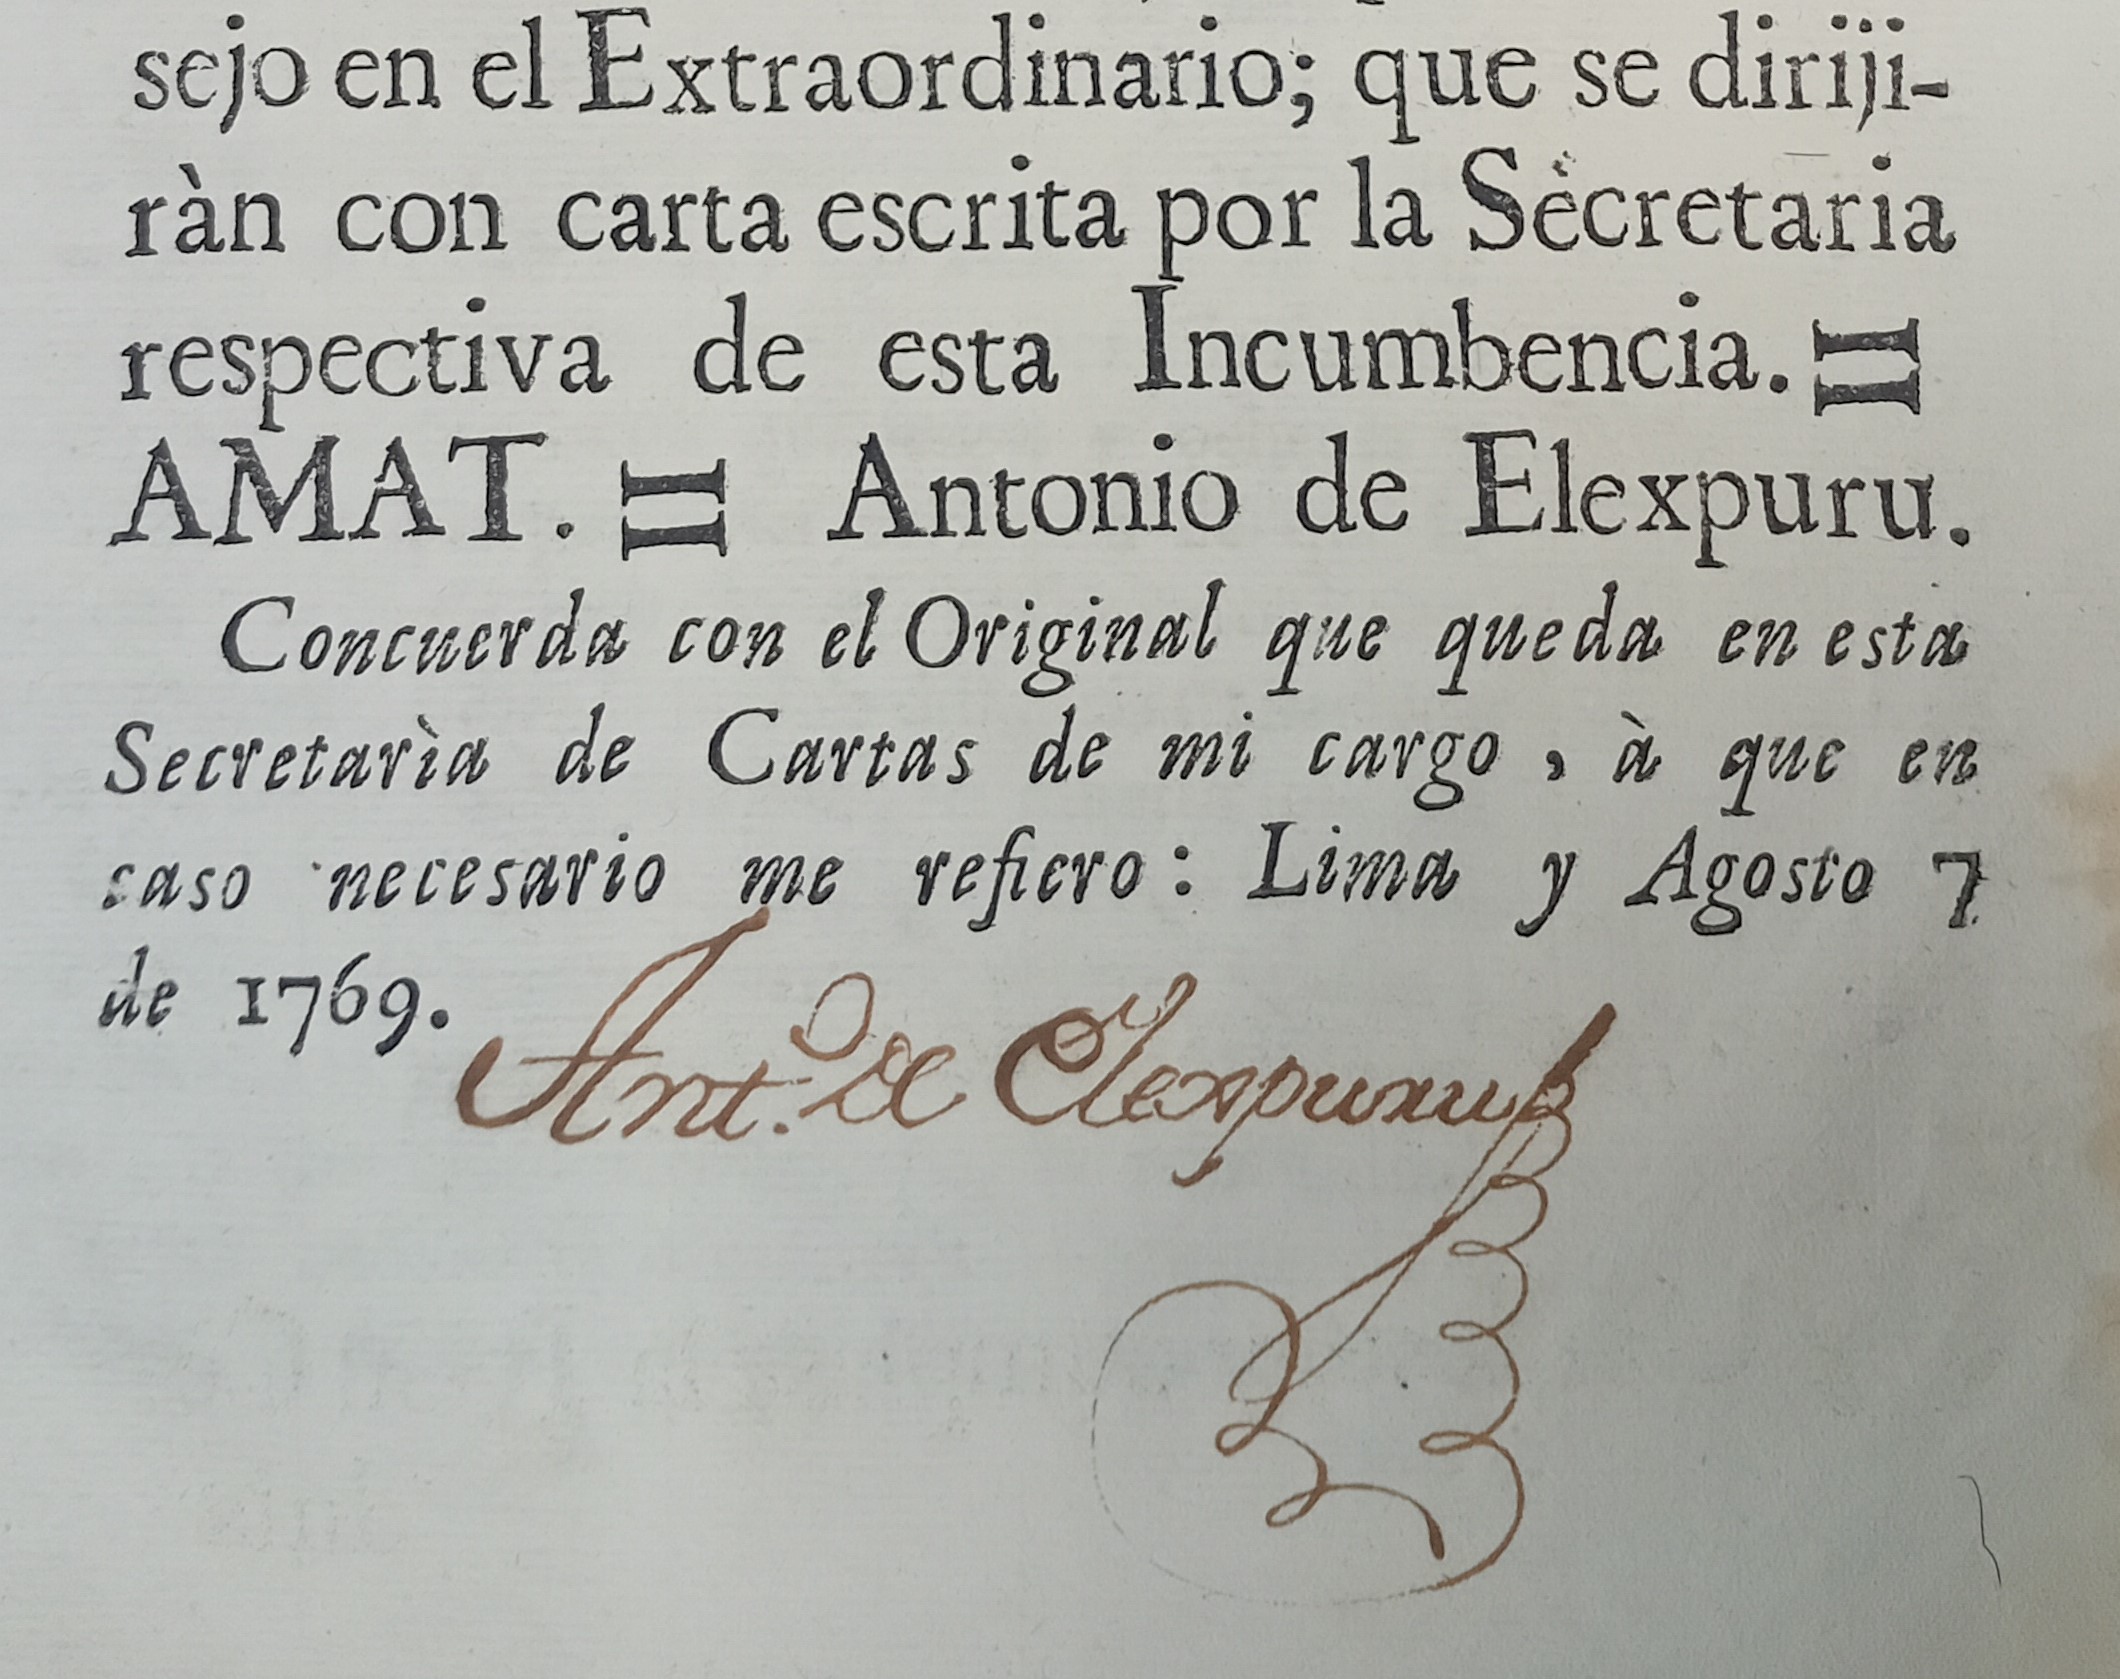 sejo en el Extraordinario; que se diriji-
ràn con carta escrita por la Secretaria
respectiva de esta Incumbencia. =
AMAT. = Antonio de Elexpuru.
Concuerda con el Original que queda en esta
Secretarìa de Cartas de mi cargo, à que en
caso necesario me refiero: Lima y Agosto 7
de 1769.
Ant.º de Elexpuru